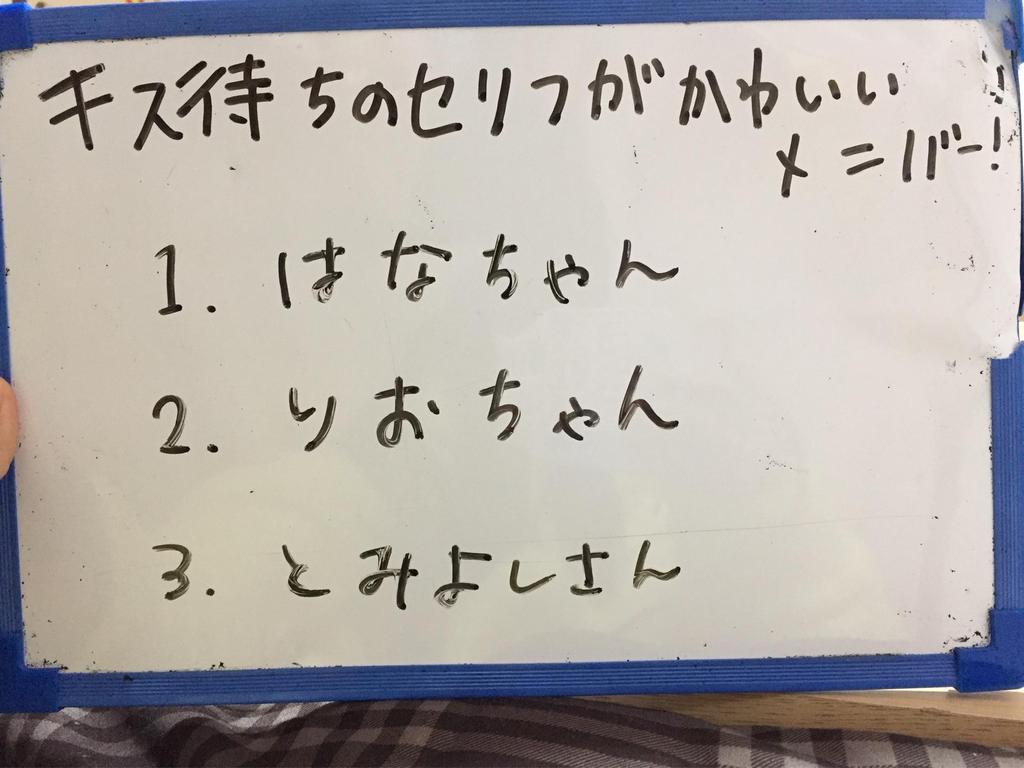 キス待ちのセリフがかわいい
メニバー!
1. はなちゃん
2. りおちゃん
3. とみよしさん